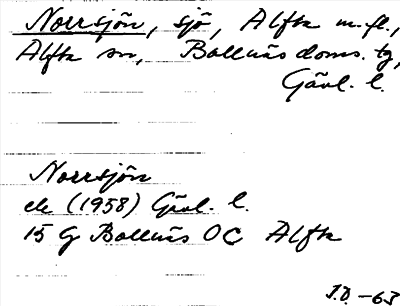 Norrsjön, sjö, Alfta m.fl.,
Alfta sn, Bollnäs doms. tg,
Gävl. l.
Norrsjön
ek (1958) Gävl. l.
15 G Bollnäs OC Alfta
I.D. -63